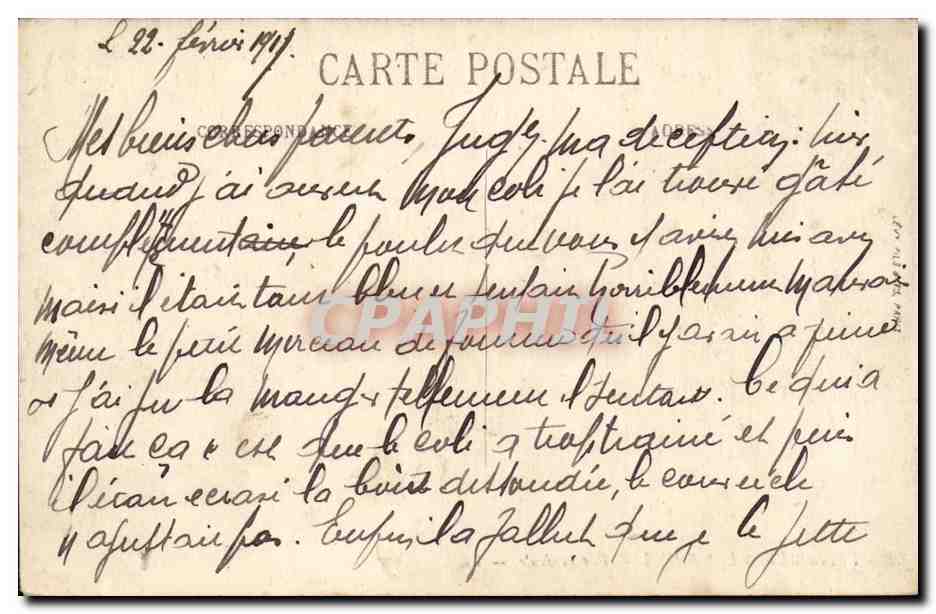 le 22 février 191
CARTE POSTALE
CORRESPONDANCE
ADRESSE
Mes biens chers parents, Jugez ma deception. hier
quand j'ai ouvert mon coli je l'ai trouvé gâté
complètement, le poulet que vous y aviez mis
mais il était tout bleu et sentait horriblement mauvai
même le petit morceau de qu'il y avait a peine
si j'ai pu la manger tellement il sentait. Ce qui a
fait ça c est que le coli a trop trainé et puis
il était ecrasé la boite dessoudée, le couvercle
n ajustait pas. Enfin il a fallut que je le jette
CPAPHIL